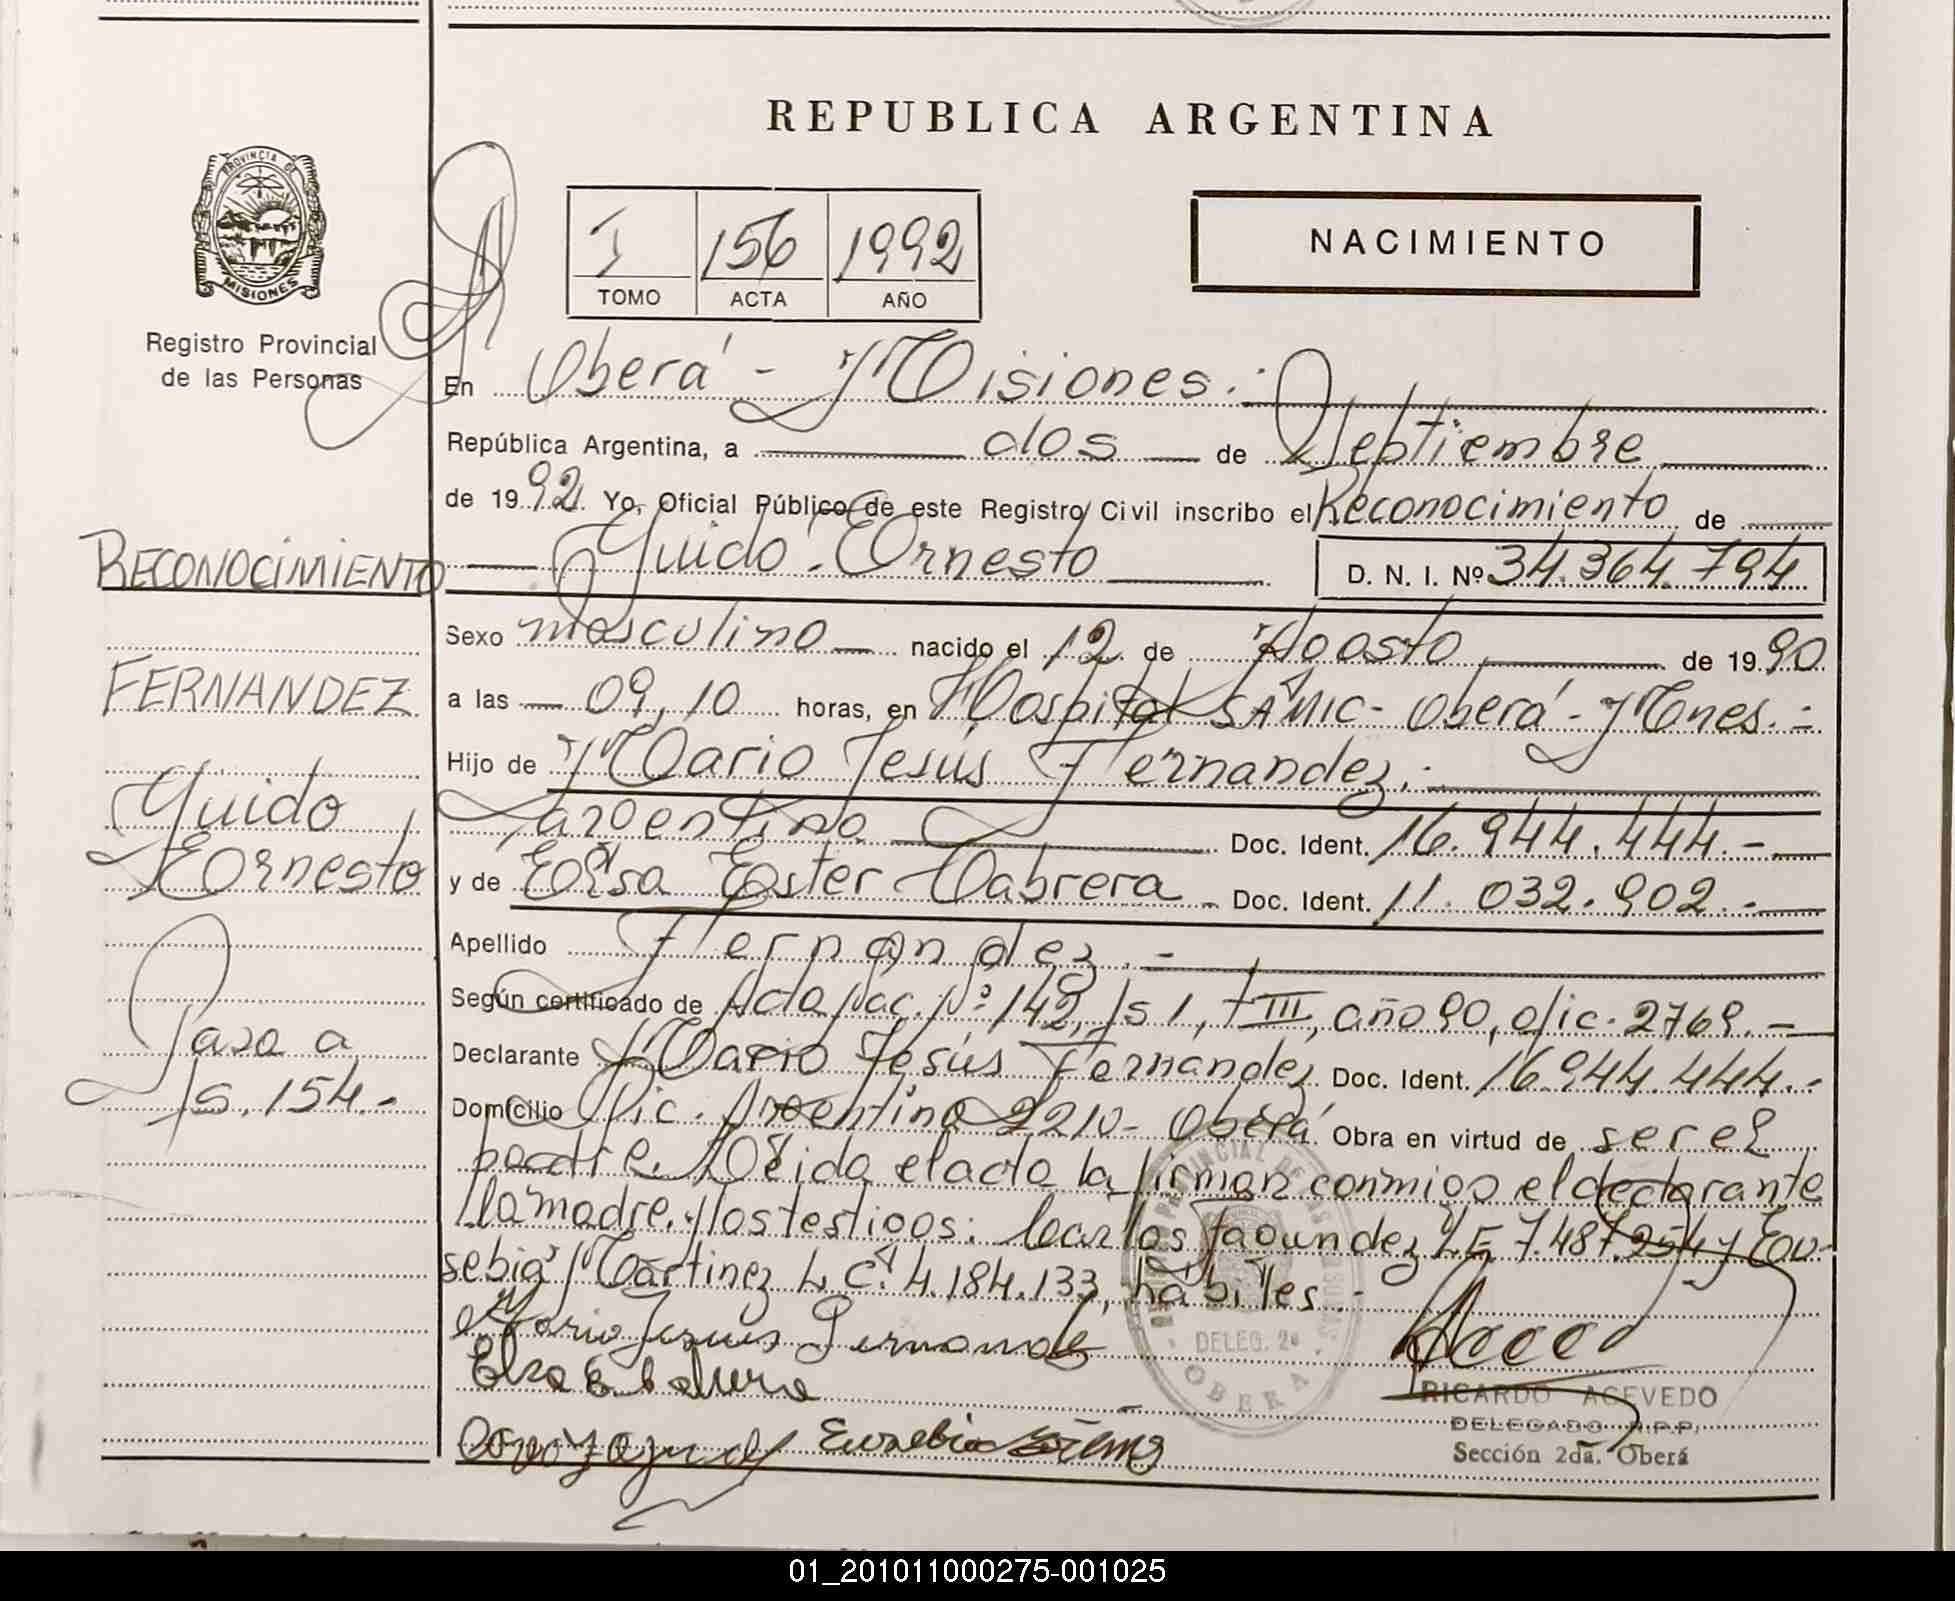 REPUBLICA ARGENTINA
PROVINCIA DE
MISIONES
Registro Provincial
de las Personas
I 156 1992
TOMO ACTA AÑO
NACIMIENTO
En Oberá - Misiones.-
República Argentina, a dos de Septiembre
de 1992 Yo, Oficial Público de este Registro Civil inscribo el Reconocimiento de
Guido Ernesto D. N. I. Nº 34.364.794
Sexo masculino nacido el 12 de Agosto de 1990
a las 09,10 horas, en Hospital SAMIC - Oberá - Mnes.-
Hijo de Mario Jesús Fernandez.-
Argentino Doc. Ident. 16.944.444.-
y de Elsa Ester Cabrera - Doc. Ident. 11.032.902.-
Apellido Fernandez.-
Según certificado de Acta Nac. Nº 142, fs 1, t III, año 90, ofic. 2769.-
Declarante Mario Jesús Fernandez Doc. Ident. 16.944.444.-
Domicilio Argentina 2210 - Oberá. Obra en virtud de ser el
padre. Leida el acta la firman conmigo el declarante
la madre y los testigos: Carlos Fagundez L.E. 7.487.254 y Eu-
sebia Martinez L.C. 4.184.133, hábiles.-
Mario Jesus Fernandez
Elsa E Cabrera
Eusebia
RICARDO ACEVEDO
DELEGADO R.P.P.
Sección 2da. Oberá
DELEG. 2a
OBERA
RECONOCIMIENTO
FERNANDEZ
Guido
Ernesto
Pasa a
fs. 154.-
01_201011000275-001025